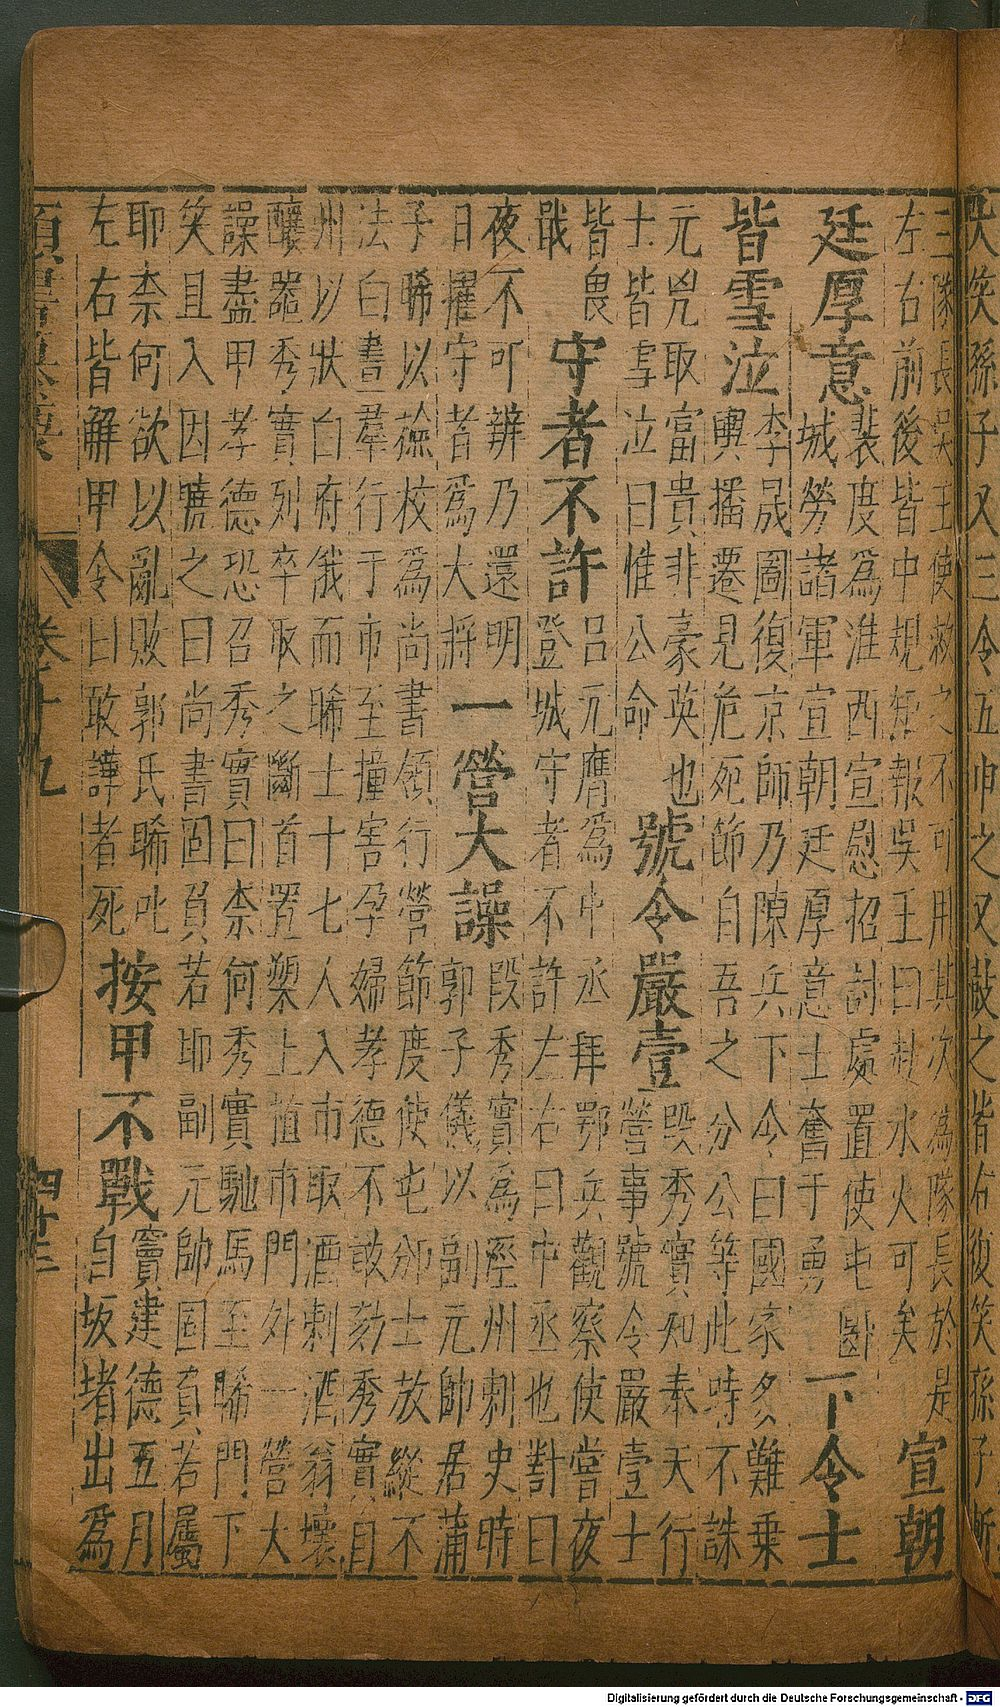 大笑孫子又三令五申之又鼓之皆右復笑孫子斬
三隊長吳王使救之不可用其次為隊長於是
左右前後皆中規矩報吳王曰赴水火可矣
宣朝
廷厚意
裴度為淮西宣慰招討處置使屯郾
城勞諸軍宣朝廷厚意士奮于勇
下令士
皆雪泣
李晟圖復京師乃陳兵下令曰國家多難乗
輿播遷見危死節自吾之分公等此時不誅
元兇取富貴非豪英也
士皆雪泣曰惟公命
號令嚴壹
段秀實知奉天行
營事號令嚴壹士
皆畏
戢
守者不許
呂元膺為中丞拜鄂兵觀察使嘗夜
登城守者不許左右曰中丞也對曰
夜不可辨乃還明
日擢守者為大將
一營大譟
段秀實為涇州刺史時
郭子儀以副元帥居蒲
子晞以檢校為尚書領行營節度使屯邠士放縱不
法白晝羣行于市至撞害孕婦孝德不敢劾秀實自
州以狀白府俄而晞士十七人入市取酒刺酒翁壞
釀器秀實列卒取之斷首置槊上植市門外一營大
譟盡甲孝德恐召秀實曰柰何秀實馳馬至晞門下
笑且入因曉之曰尚書固負若耶副元帥固負若屬
耶柰何欲以亂敗郭氏晞叱
左右皆解甲令曰敢譁者死
按甲不戰
竇建德五月
自坂堵出為
卷十九
四十三
Digitalisierung gefördert durch die Deutsche Forschungsgemeinschaft - DFG